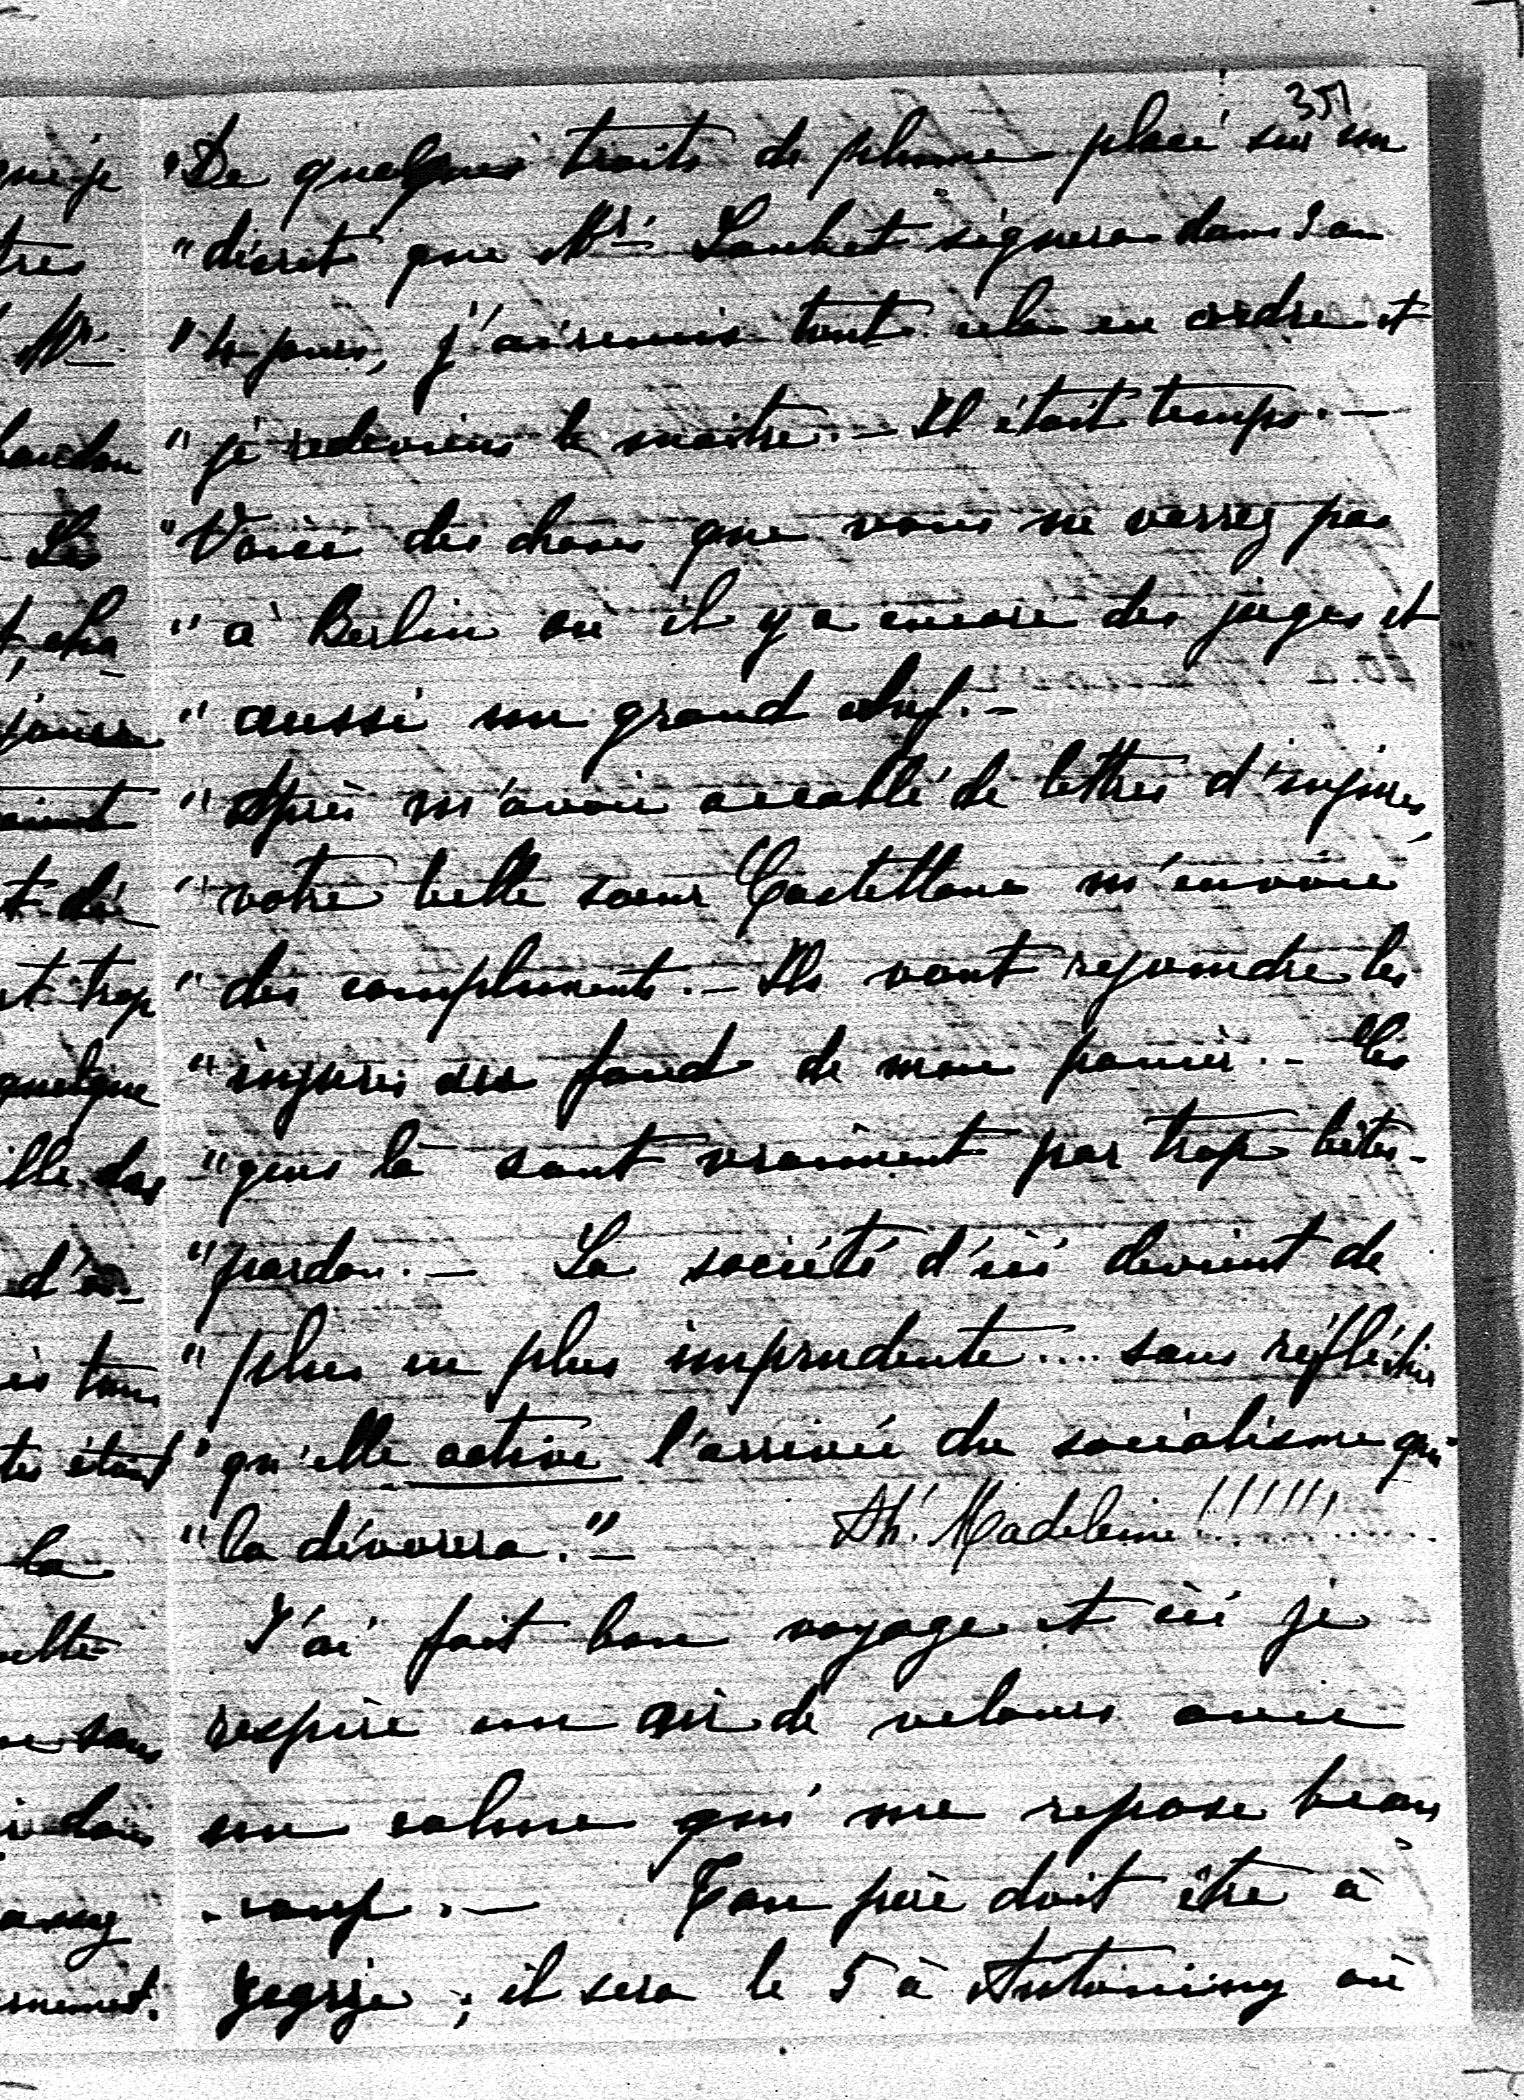 351
"De quelques traits de plume placé sur un
"décret que Mr. Loubet signera dans 3 ou
"4 jours, j'ai remis tout cela en ordre et
"je redeviens le maître. — Il était temps. —
"Voici des choses que vous ne verrez pas
"à Berlin où il y a encore des juges et
"aussi un grand chef. —
"Après m'avoir accablé de lettres d'injures,
"votre belle sœur Castellane m'envoie
"des compliments. — Ils vont rejoindre les
"injures au fond de mon panier. — Ces
"gens là sont vraiment par trop bêtes -
"pardon. — La société d'ici devient de
"plus en plus imprudente .... sans réfléchir
"qu'elle active l'arrivée du socialisme qui
"la dévorera." — Ah! Madeleine !!!!!!
J'ai fait bon voyage et ici je
respire un air de velours avec
un calme qui me repose beau
-coup. — Ton père doit être à
; il sera le 5 à Antoniny où